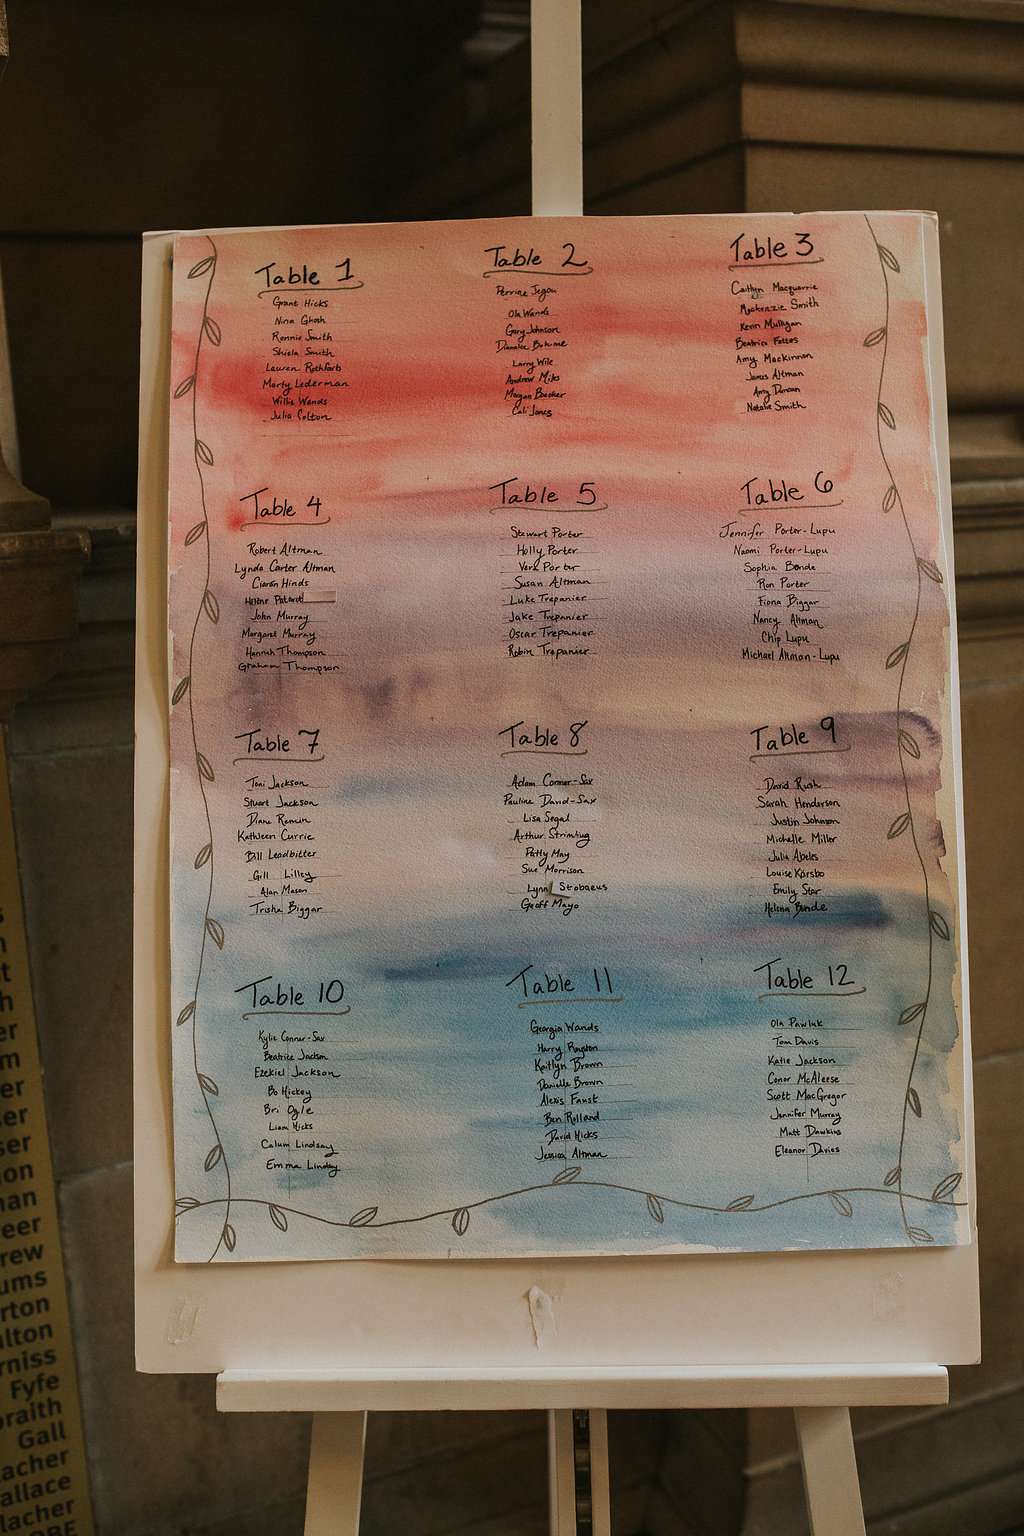 Table 1
Grant Hicks
Nina Ghosh
Ronnie Smith
Shiela Smith
Lauren Rothforts
Marty Lederman
Willie Wands
Julia Colton
Table 2
Perrine Jegou
Ola Wands
Gary Johnson
Larry Wile
Andrew Miks
Megan Booker
Cali Jones
Table 3
Caitlyn Macquarrie
Mackenzie Smith
Kenn Mulligan
Beatrice Fettes
Amy Mackinnon
James Altman
Amy Duncan
Natalie Smith
Table 4
Robert Altman
Lynda Carter Altman
Ciaran Hinds
John Murray
Margaret Murray
Hannah Thompson
Graham Thompson
Table 5
Stewart Porter
Holly Porter
Vera Porter
Susan Altman
Luke Trepanier
Jake Trepanier
Oscar Trepanier
Robin Trepanier
Table 6
Jennifer Porter-Lupu
Naomi Porter-Lupu
Sophia Bende
Ron Porter
Fiona Biggar
Nancy Altman
Chip Lupu
Michael Altman-Lupu
Table 7
Toni Jackson
Stuart Jackson
Diane Remin
Kathleen Currie
Bill Leadbitter
Gill Lilley
Alan Mason
Trisha Biggar
Table 8
Adam Connor-Sax
Pauline David-Sax
Lisa Segal
Arthur Strimling
Patly May
Sue Morrison
Lynn Stobaeus
Geoff Mayo
Table 9
David Rush
Sarah Henderson
Justin Johnson
Michelle Miller
Julia Abeles
Louise Korsbo
Emily Star
Helena Bende
Table 10
Kylie Connor-Sax
Beatrice Jackson
Ezekiel Jackson
Bo Hickey
Bri Ogle
Liam Hicks
Calum Lindsay
Emma Lindsay
Table 11
Georgia Wands
Harry Royston
Kaitlyn Brown
Danielle Brown
Alexis Faust
Ben Rolland
David Hicks
Jessica Altman
Table 12
Ola Pawluk
Tom Davis
Katie Jackson
Conor McAleese
Scott MacGregor
Jennifer Murray
Matt Dawkins
Eleanor Davies
Fyfe
Gall